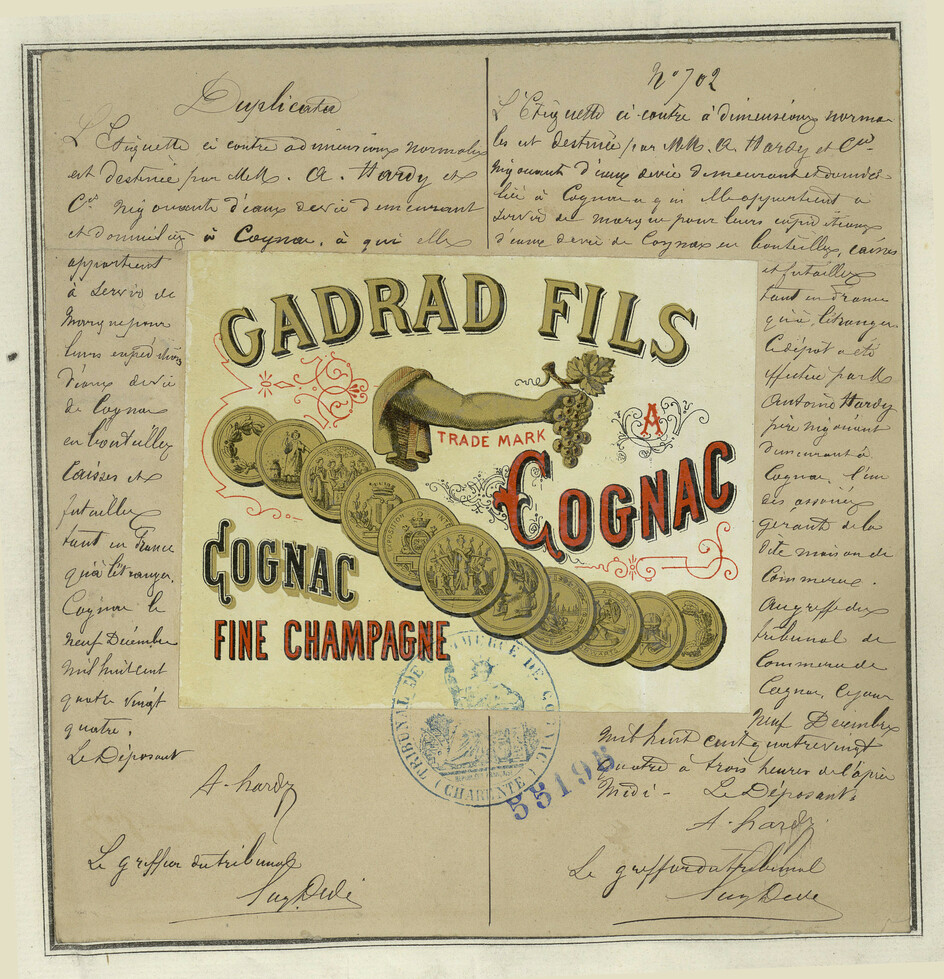 Duplicata
L'Etiquette ci contre à dimensions normales
est destinée par MM. A. Hardy et
Cie négociants d'eaux de vie demeurant
et domiciliés à Cognac, à qui elle
appartient
à servir de
marque pour
leurs expéditions
d'eaux de vie
de Cognac
en bouteilles
caisses et
futailles
tant en France
qu'à l'étranger.
Cognac le
neuf Décembre
mil huit cent
quatre vingt
quatre.
Le Déposant
A. hardy
Le greffier du tribunal
N° 702
L'Etiquette ci-contre à dimensions norma-
les est destinée par MM. A. Hardy et Cie
négociants d'eaux de vie demeurant et domici-
liés à Cognac à qui elle appartient à
servir de marque pour leurs expéditions
d'eaux de vie de Cognac en bouteilles, caisses
et futailles
tant en France
qu'à l'étranger
Le dépôt a été
effectué par M
Antoine Hardy
père négociant
demeurant à
Cognac, l'un
des associés
gérant de la
dite maison de
Commerce.
Au greffe du
tribunal de
Commerce de
Cognac, ce jour
neuf Décembre
mil huit cent quatre vingt
quatre à trois heures de l'après
midi - Le Déposant
A. hardy
Le greffier du tribunal
GADRAD FILS
TRADE MARK
A
COGNAC
COGNAC
FINE CHAMPAGNE
TRIBUNAL DE COMMERCE DE COGNAC
(CHARENTE)
55195